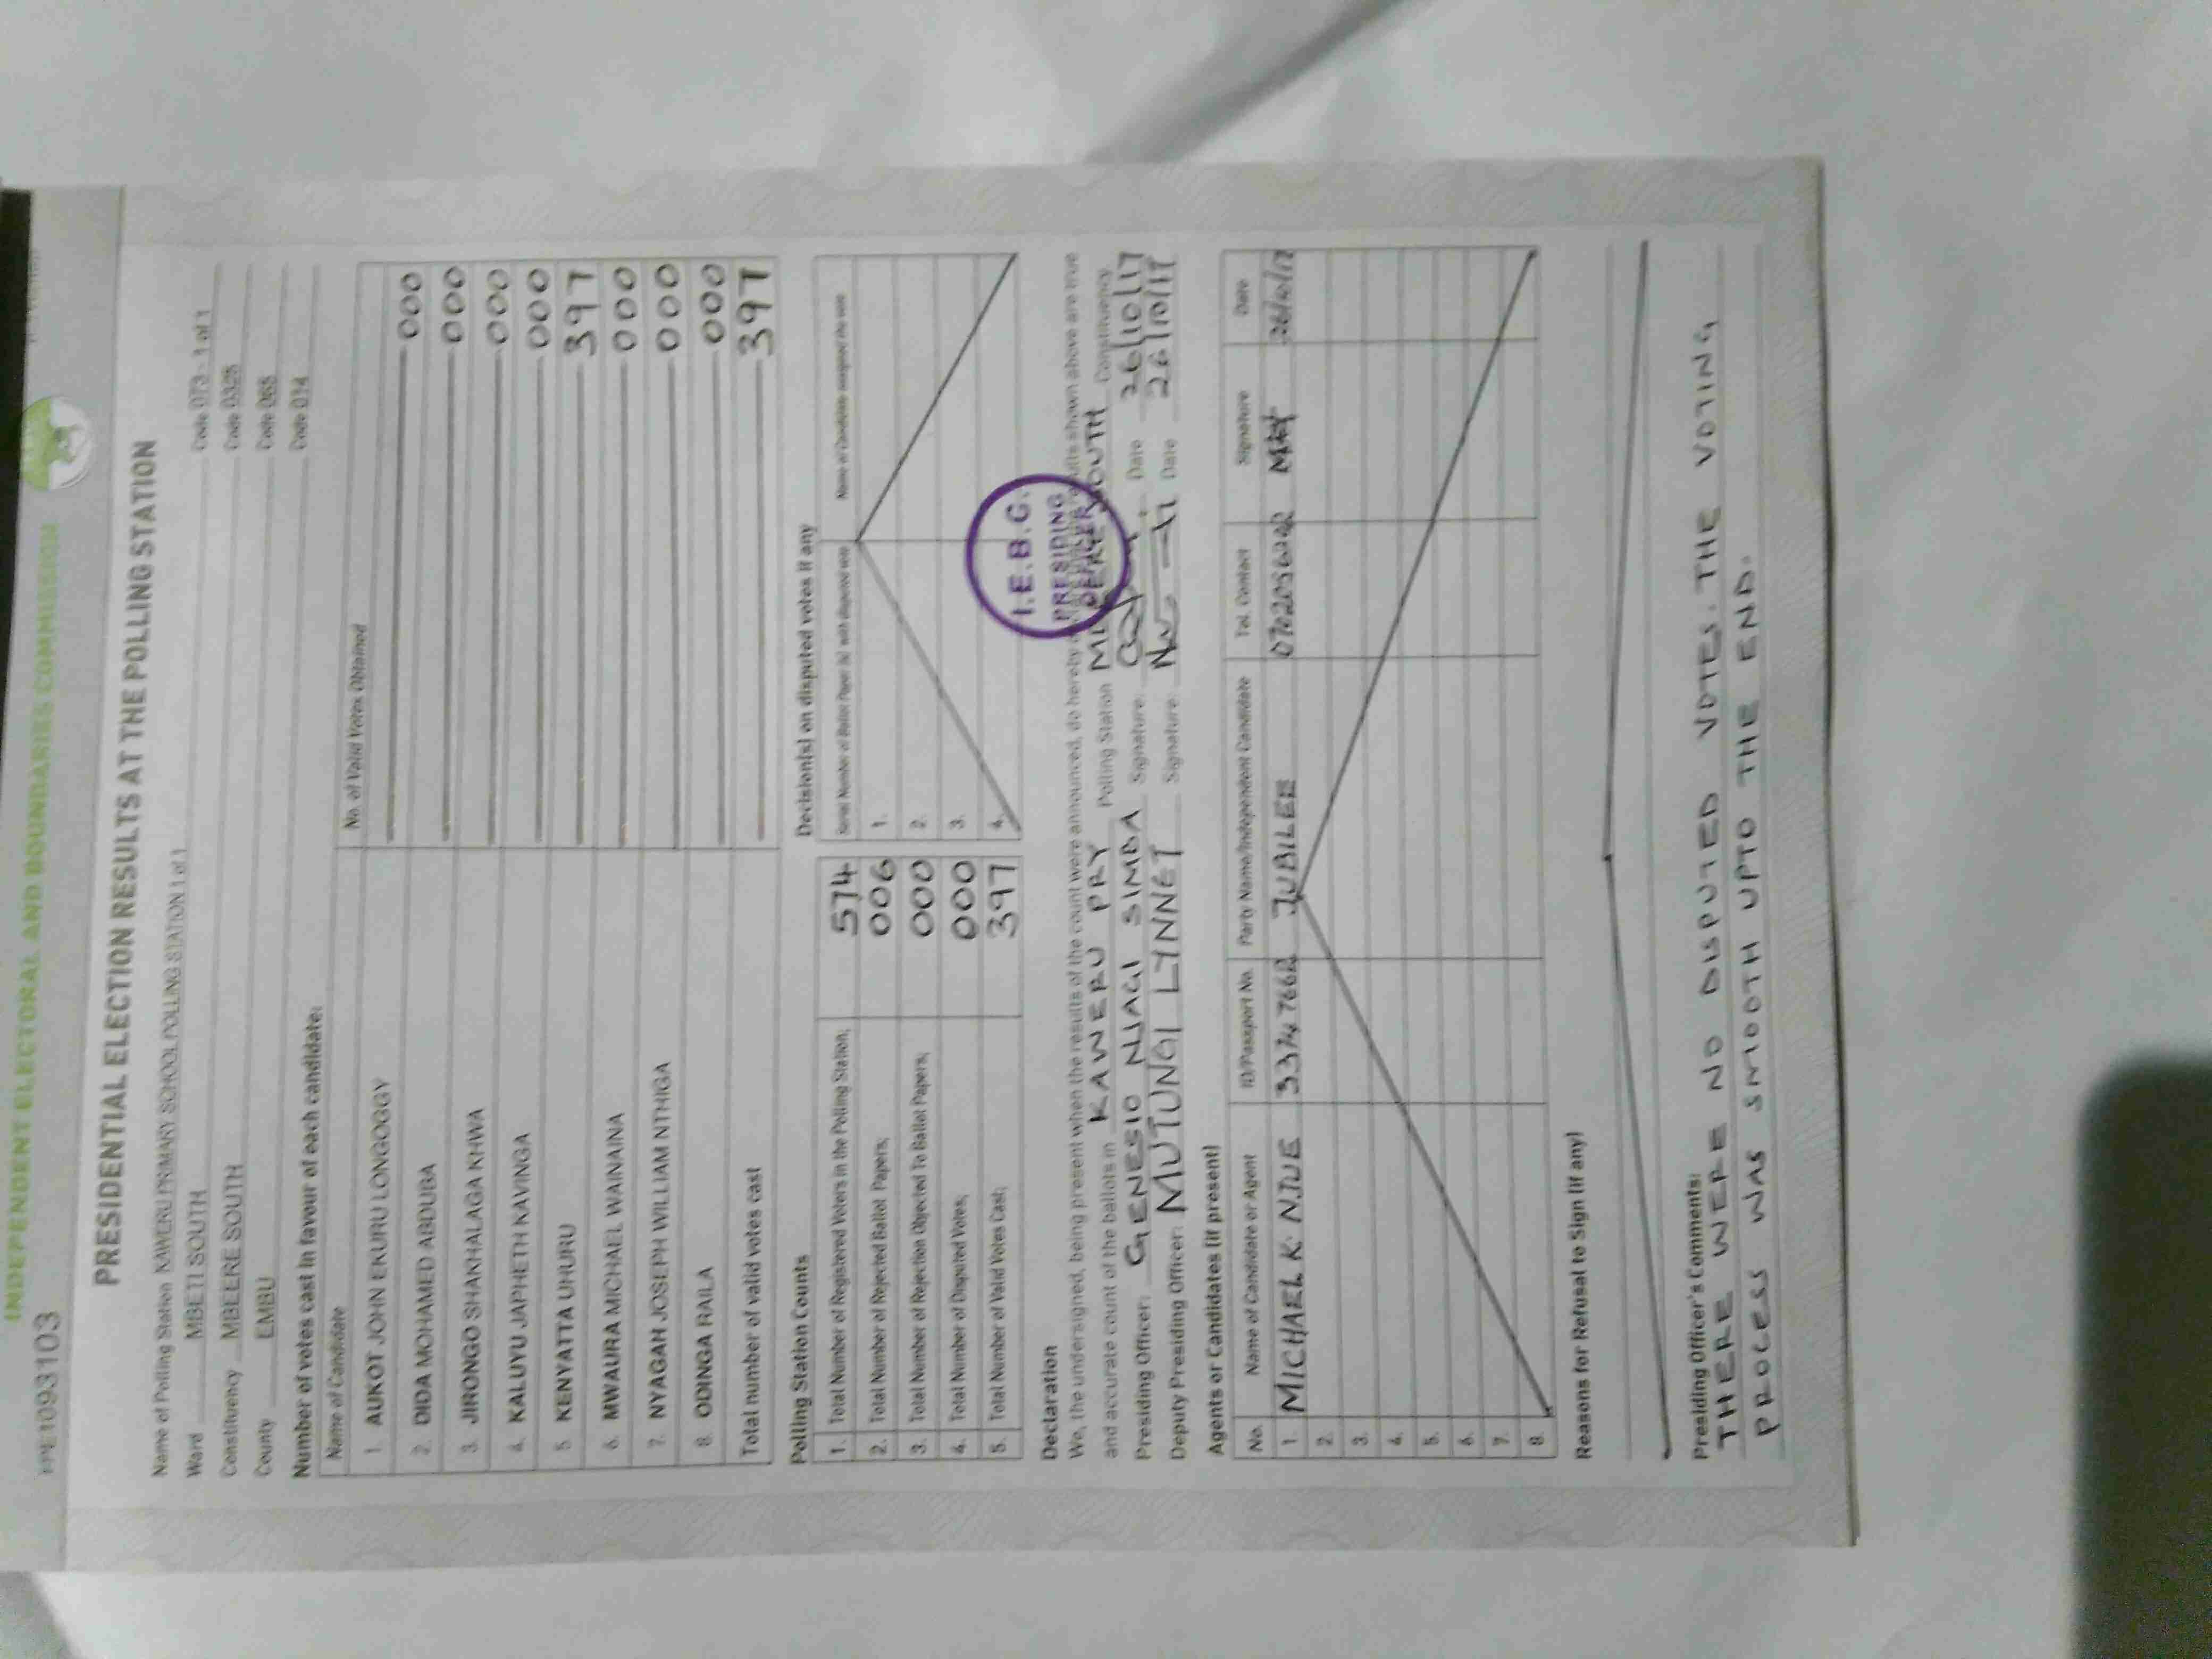 INDEPENDENT ELECTORAL AND BOUNDARIES COMMISSION
PRESIDENTIAL ELECTION RESULTS AT THE POLLING STATION
Name of Polling Station KAWERU PRIMARY SCHOOL POLLING STATION 1 of 1 Code 073 - 1 of 1
Ward MBETI SOUTH Code 0325
Constituency MBEERE SOUTH Code 065
County EMBU Code 014
Number of votes cast in favour of each candidate:
Name of Candidate No. of Valid Votes Obtained
1. AUKOT JOHN EKURU LONGOGGY 000
2. DIDA MOHAMED ABDUBA 000
3. JIRONGO SHAKHALAGA KHWA 000
4. KALUYU JAPHETH KAVINGA 000
5. KENYATTA UHURU 397
6. MWAURA MICHAEL WAINAINA 000
7. NYAGAH JOSEPH WILLIAM NTHIGA 000
8. ODINGA RAILA 000
Total number of valid votes cast 397
Polling Station Counts
1. Total Number of Registered Voters in the Polling Station; 574
2. Total Number of Rejected Ballot Papers; 006
3. Total Number of Rejection Objected To Ballot Papers; 000
4. Total Number of Disputed Votes; 000
5. Total Number of Valid Votes Cast; 397
Decision(s) on disputed votes if any
Serial Number of Ballot Paper (s) with disputed vote Name of Candidate assigned the vote
1.
2.
3.
4.
I.E.B.C.
PRESIDING
OFFICER
Declaration
We, the undersigned, being present when the results of the count were announced, do hereby results shown above are true
and accurate count of the ballots in KAWERU PRY Polling Station SOUTH Constituency
Presiding Officer: GENESIO NJAGI SIMBA Signature: Date 26/10/17
Deputy Presiding Officer: MUTUNGI LYNNET Signature: Date 26/10/17
Agents or Candidates (if present)
No. Name of Candidate or Agent ID/Passport No. Party Name/Independent Candidate Tel. Contact Signature Date
1. MICHAEL K. NJUE JUBILEE
2.
3.
4.
5.
6.
7.
8.
Reasons for Refusal to Sign (if any)
Presiding Officer's Comments:
THERE WERE NO DISPUTED VOTES. THE VOTING
PROCESS WAS SMOOTH UPTO THE END.